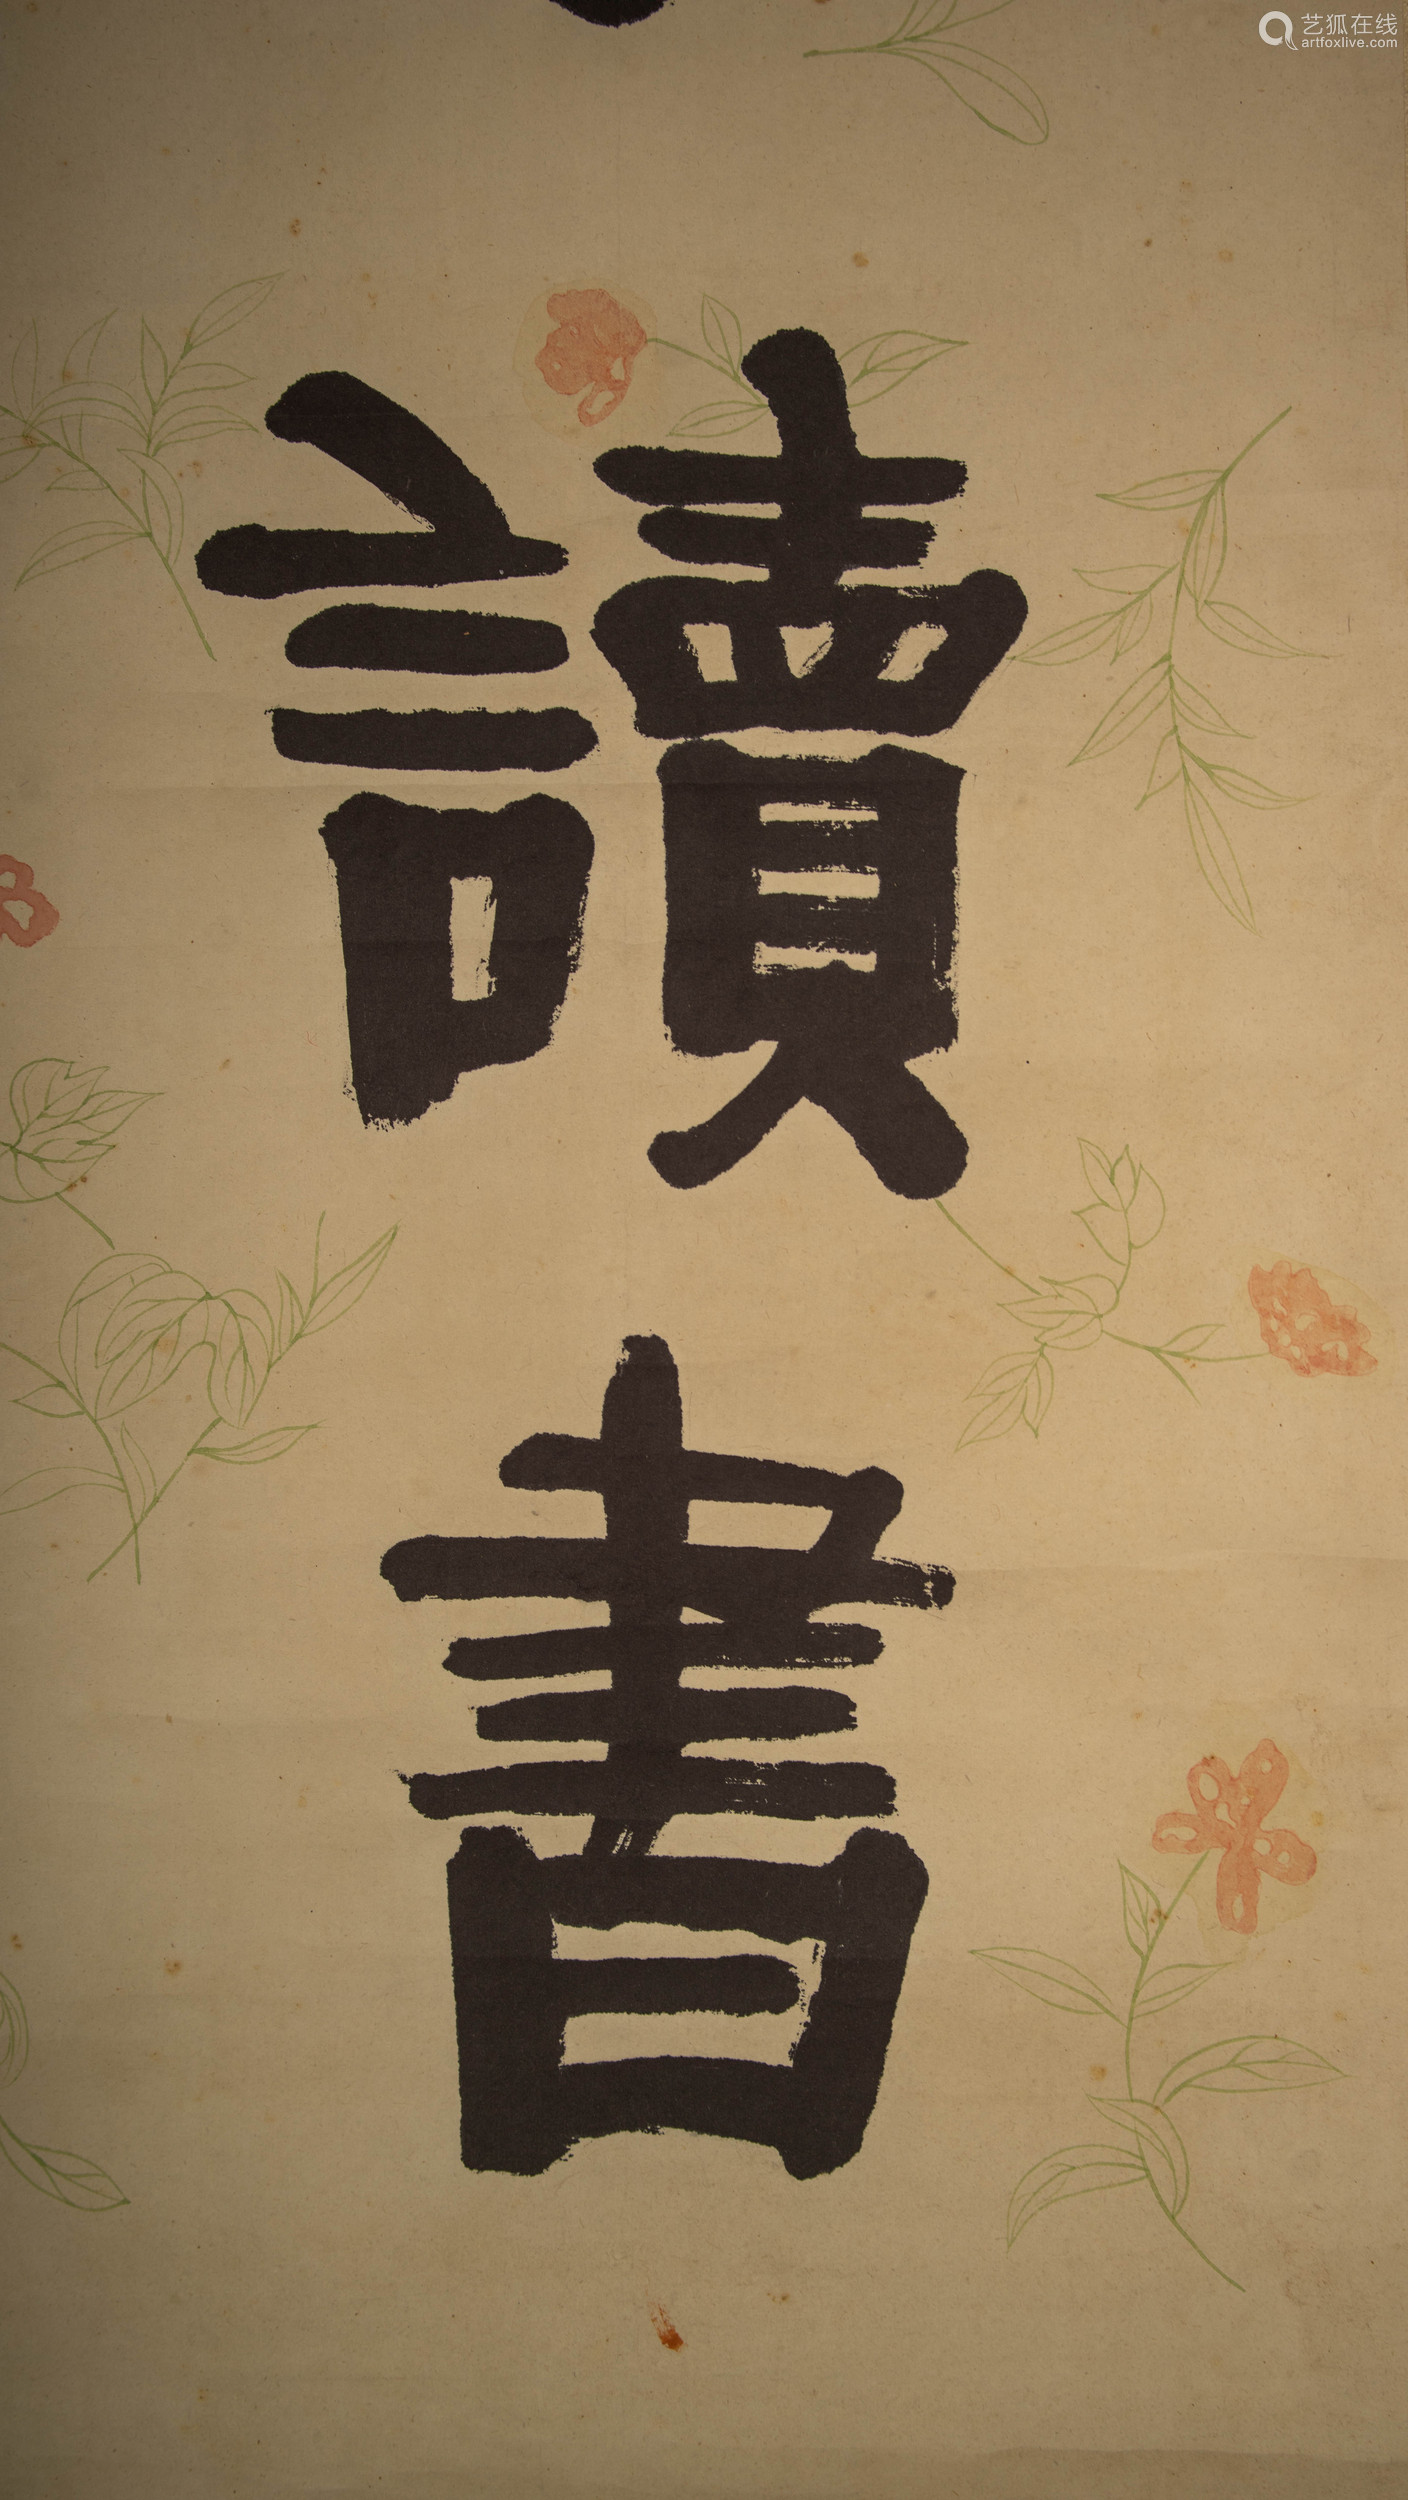 艺狐在线
artfoxlive.com
讀
書